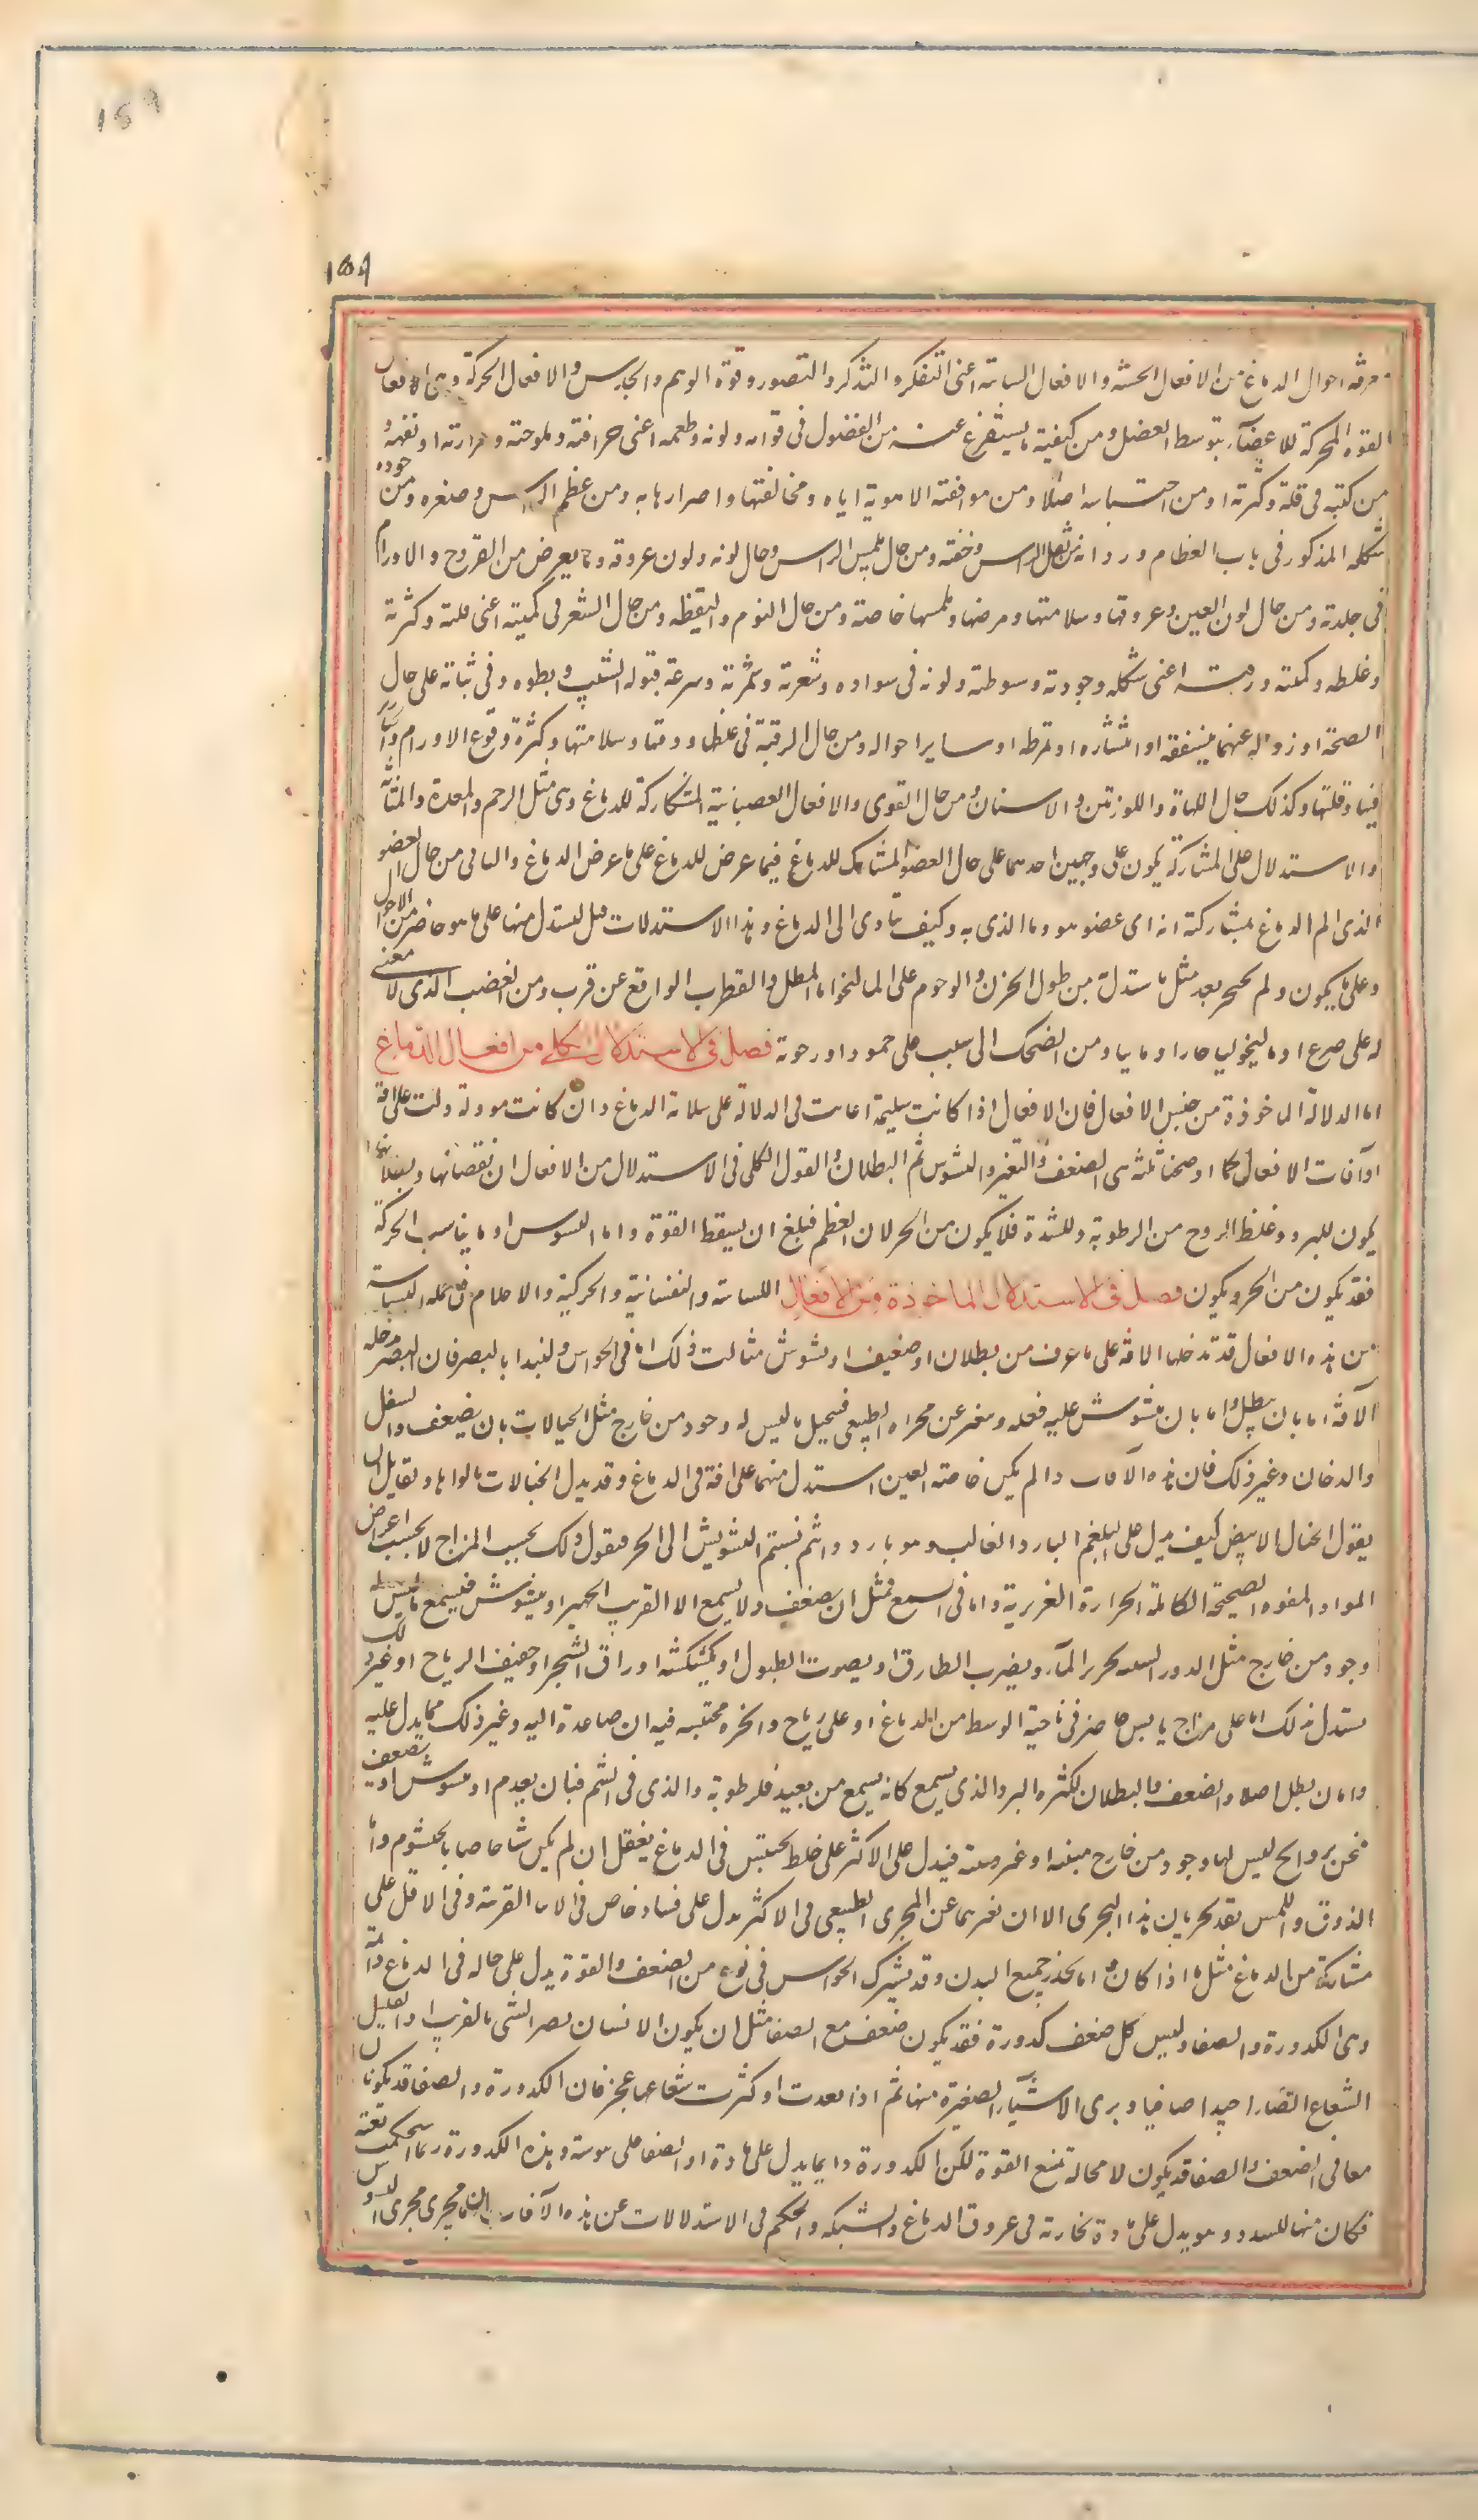 159
159
معرفة احوال الدماغ من الافعال الحسية والافعال السياسة اعنى التفكر والتذكر والتصور وقوة الوهم والحدس والافعال الحركية وهى افعال
القوة المحركة للاعضاء بتوسط العضل ومن كيفية ما يستفرغ عنه من الفضول فى قوامه ولونه وطعمه اعنى حرافته وملوحته ومرارته او تفهه و
من كميته فى قلة وكثرته او من احتباسه اصلا ومن موافقته الاهوية اياه ومخالفتها واضرارها به ومن عظم الراس وصغره ومن جوده
شكله المذكور فى باب العظام ورداته من ثقل الراس وخفته ومن حال ملمس الراس وحال لونه ولون عروقه وما يعرض من القروح والاورام
فى جلدته ومن حال لون العين وعروقها وسلامتها ومرضها وملمسها خاصة ومن حال النوم واليقظه ومن حال الشعر فى كميته اعنى قلته وكثرته
وغلظه وكيفيته اعنى شكله وجودته وسبوطته ولونه فى سواده وشعرته وسرعة قبوله الشيب وبطوه وفى ثباته على حال
الصحة او زواله عنهما بتشققه او انتشاره او تمرطه او ساير احواله ومن حال الرقبة فى غلظها ودقتها وسلامتها وكثرة وقوع الاورام
فيها وقلتها وكذلك حال اللهاة واللوزتين والاسنان ومن حال القوى والافعال العصبانية المشاركة للدماغ وهى مثل الرحم والمعدة والمثانة
والاستدلال على المشاركة يكون على وجهين احدهما على حال العضو المشارك للدماغ فيما عرض للدماغ على ما عرض الدماغ والثانى من حال العضو
الذى الم الدماغ بمشاركته انه اى عضو هو وما الذى به وكيف تتاوى الى الدماغ وهذا الاستدلات قبل ليستدل منها على ما هو حاضر من الاحوال
وعلى ما يكون ولم يحضر بعد مثل ما يستدل من طول الحزن والوحوم على المالنخوليا المطل والقطرب الواقع عن قرب ومن الغضب الذى لا معنى
له على صرع او مالنخوليا حارا او مانيا ومن الضحك الى سبب على حمود او رعونة فصل فى الاستدلال الكلى من افعال الدماغ
اما الدلالة الماخوذة من جنس الافعال فان الافعال اذا كانت سليمة اعانت فى الدلالة على سلامة الدماغ وان كانت موفة دلت على افة
او آفات الافعال كما اوضحنا ثلثة هى الضعف والتغير والتشوش ثم البطلان والقول الكلى فى الاستدلال من الافعال ان نقصانها وبطلانها
يكون للبرد وغلظ الروح من الرطوبة وللسدة فلا يكون من الحر لان العظم فبلغ ان يسقط القوة واما التشوش او ما يناسب الحركة
فقد يكون من الحر ويكون فصل فى الاستدلال الماخوذة من الافعال اللسانة والنفسانية والحركية والاحلام فى جملة السياسة
من هذه الافعال قد تدخلها الافة على ما عرف من بطلان او ضعيف او تشوش مثالت ذلك اما فى الحواس ولنبدا بالبصر فان البصر تدخله
الآفة اما بان يبطل واما بان يتشوش عليه فعله وبتغير عن مجراه الطبيعى فيتخيل ما ليس له وجود من خارج مثل الخيالات بان يضعف والسفل
والدخان وغير ذلك فان هذه الآفات والم يكن خاصة العين استدل منها على افة فى الدماغ وقد يدل الخيالات بالوانها ولقايل ان
يقول الخيال الابيض كيف يدل على البلغم البارد والغالب وهو بارد وانتم نسبتم التشويش الى الحر فيقول ذلك بحسب المزاج لا بحسب اعراض
المواد المفوه الصحيحة الكاملة الحرارة الغريزية واما فى السمع فمثل ان يضعف ولا يسمع الا القريب الجهير او يتشوش فيسمع ما ليس له
وجود من خارج مثل الدور الشبيه بخرير المآء وبضرب الطارق او بصوت الطبول او كشكشه اوراق الشجر او حفيف الرياح او غير ذلك
يستدل بذلك اما على مزاج يابس حاضر فى ناحية الوسط من الدماغ او على رياح وابخرة محتبسه فيه ان صاعدة اليه وغير ذلك مما يدل عليه
واما ان يبطل اصلا والضعف والبطلان لكثرة البرد والذى يسمع كانه يسمع من بعيد فلرطوبة والذى فى الشم فبان يعدم او يتشوش او يضعف
نحس بروائح ليس لها وجود من خارج منتنه او غير منتنة فيدل على الاكثر على خلط محتبس فى الدماغ يفعل ان لم يكن شيا خاصا بالخيشوم واما
الذوق واللمس فقد يجريان هذا المجرى الا ان تغيرهما عن المجرى الطبيعى فى الاكثر يدل على فساد خاص فى الالات القريبة وفى الاقل على
مشاركة من الدماغ مثل ما اذا كان عاما كخدر جميع البدن وقد يشترك الحواس فى نوع من الضعف والقوة يدل على حالة فى الدماغ دائمة
وهى الكدورة والصفا وليس كل ضعف كدورة فقد يكون ضعف مع الصفا مثل ان يكون الانسان يبصر الشى بالقريب والقليل
الشعاع ابصارا جيدا صافيا ويرى الاشياء الصغيرة منها ثم اذا بعدت او كثرت شعاعها عجز فان الكدورة والصفا قد يكونا
معا فى الضعف والصفا قد يكون لا محالة تمنع القوة لكن الكدورة دايما يدل على مادة او الصفا على يبوسة وهذه الكدورة ربما استحكمت بغتة
فكان منها السدر وهو يدل على مادة بخارية فى عروق الدماغ والشبكه والحكم فى الاستدلالات عن هذه الآفات ان ما يجرى مجرى التشوش